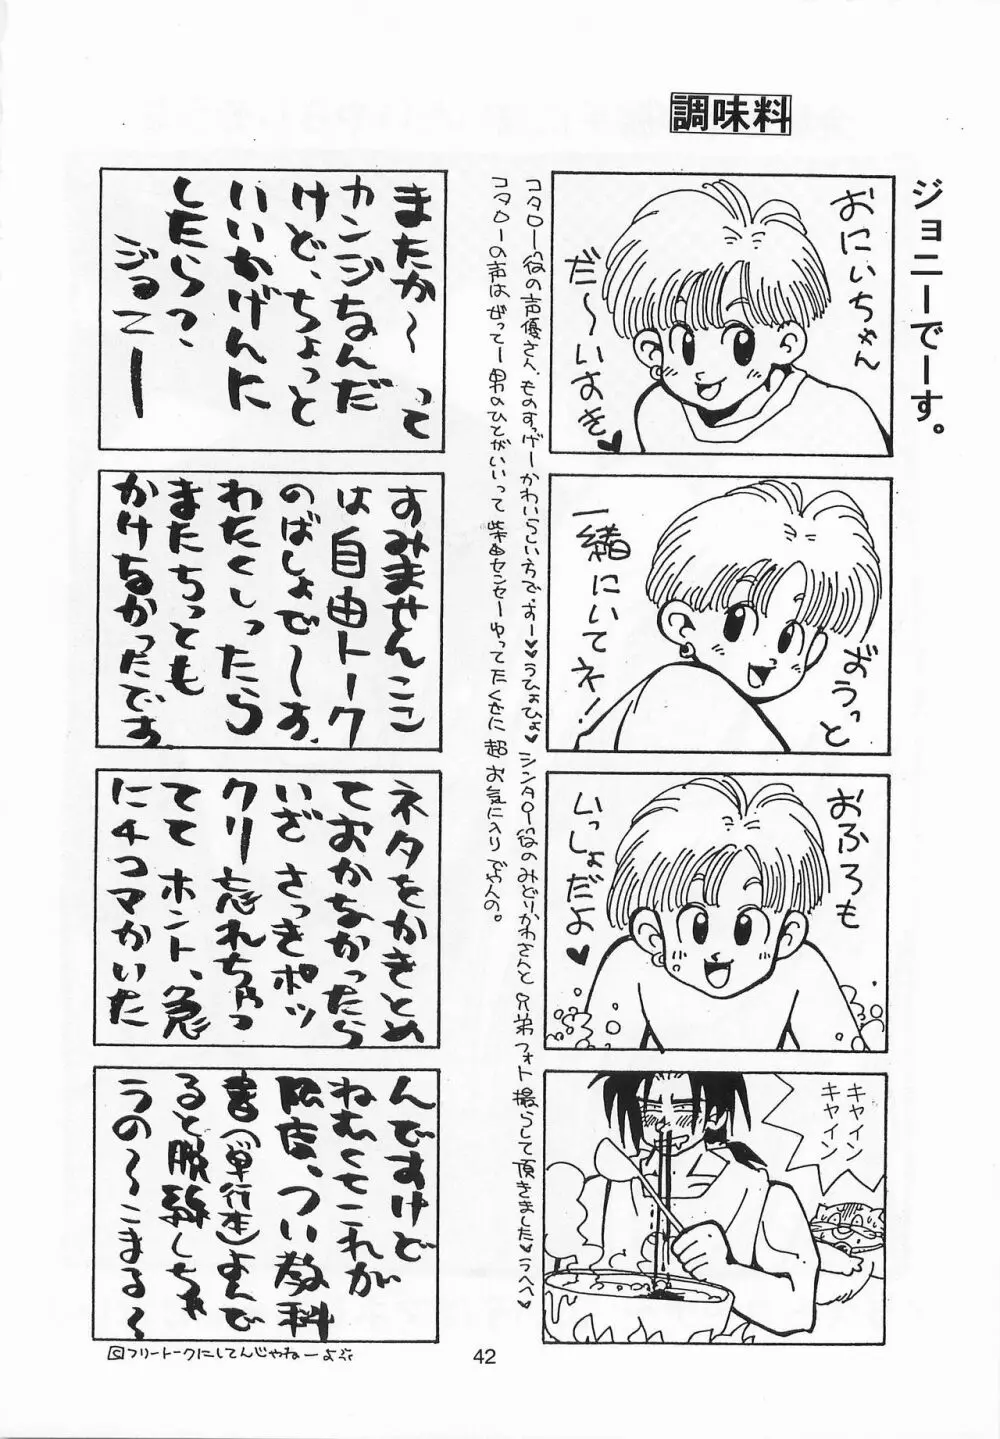 調味料
ジョニーでーす。
おにいちゃん
だ〜いすき♥
一緒にいてネ!
ずうっと
おふろも
いっしょだよ♥
キャイン
キャイン
コタロー役の声優さん、ものすっげーかわいらしい方でーすー♥うひょひょ♥シンタロー役のみどりかわさんと兄弟フォト撮らして頂きました♥うへへ♥
コタローの声はぜってー男のひとがいいって柴田センセーゆってたくせに超お気に入りでやんの。
またか〜って
カンジなんだ
けど、ちょっと
いいかげんに
したらっ
ジョニー
すみませんここ
は自由トーク
のばしょで〜す。
わたくしったら
またちっとも
かけなかったです
ネタをかきとめ
ておかなかったら
いざさっきポッ
クリー忘れちゃっ
ててホント、急
に4コマかいた
んですけど
ねむくてこれが
つい教科
書(単行本)よんで
ると脱線しちゃ
うの〜こまる〜
フリートークにしてんじゃねーよ
42